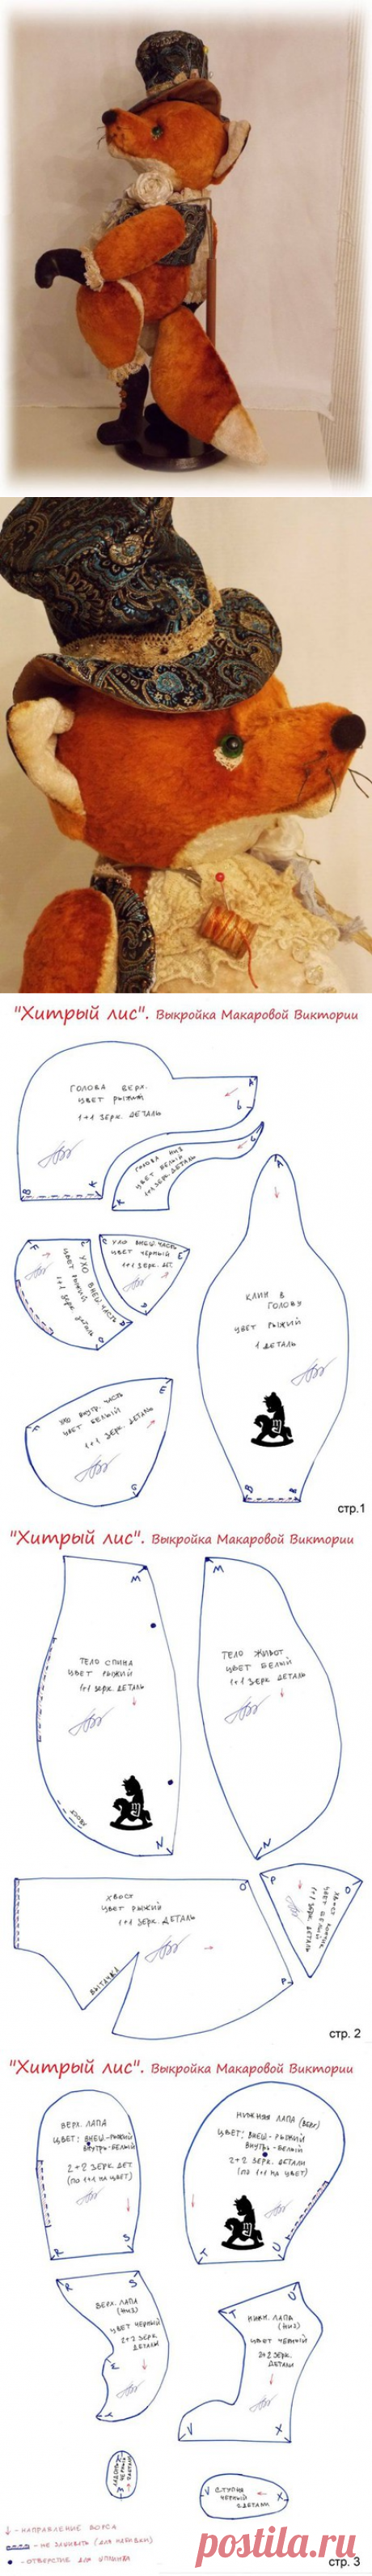 "Хитрый лис". Выкройка Макаровой Виктории
ГОЛОВА ВЕРХ.
ЦВЕТ РЫЖИЙ
1+1 ЗЕРК. ДЕТАЛЬ
A
L
B
K
ГОЛОВА НИЗ
ЦВЕТ БЕЛЫЙ
1+1 ЗЕРК. ДЕТАЛЬ
L
K
A
КЛИН В
ГОЛОВУ
ЦВЕТ РЫЖИЙ
1 ДЕТАЛЬ
B
B
F
C
УХО ВНЕШ. ЧАСТЬ
ЦВЕТ РЫЖИЙ
1+1 ЗЕРК. ДЕТАЛЬ
D
C
УХО ВНЕШ. ЧАСТЬ
ЦВЕТ ЧЕРНЫЙ
1+1 ЗЕРК. ДЕТ.
E
D
E
F
УХО ВНУТР. ЧАСТЬ
ЦВЕТ БЕЛЫЙ
1+1 ЗЕРК. ДЕТАЛЬ
G
стр.1
"Хитрый лис". Выкройка Макаровой Виктории
M
ТЕЛО СПИНА
ЦВЕТ РЫЖИЙ
1+1 ЗЕРК. ДЕТАЛЬ
ХВОСТ
N
M
ТЕЛО ЖИВОТ
ЦВЕТ БЕЛЫЙ
1+1 ЗЕРК. ДЕТАЛЬ
N
ХВОСТ
ЦВЕТ РЫЖИЙ
1+1 ЗЕРК. ДЕТАЛЬ
O
ВЫТАЧКА
P
P
O
ХВОСТ КОНЧИК
ЦВЕТ БЕЛЫЙ
1+1 ЗЕРК. ДЕТАЛЬ
стр. 2
"Хитрый лис". Выкройка Макаровой Виктории
ВЕРХ. ЛАПА
ЦВЕТ: ВНЕШ-РЫЖИЙ
ВНУТРЬ-БЕЛЫЙ
2+2 ЗЕРК. ДЕТ.
(ПО 1+1 НА ЦВЕТ)
R
S
НИЖНЯЯ ЛАПА (ВЕРХ)
ЦВЕТ: ВНЕШ-РЫЖИЙ
ВНУТРЬ-БЕЛЫЙ
2+2 ЗЕРК. ДЕТАЛИ
(ПО 1+1 НА ЦВЕТ)
T
U
R
S
ВЕРХ. ЛАПА
(НИЗ)
ЦВЕТ ЧЕРНЫЙ
2+2 ЗЕРК.
ДЕТАЛИ
T
U
НИЖН. ЛАПА
(НИЗ)
ЦВЕТ ЧЕРНЫЙ
2+2 ЗЕРК.
ДЕТАЛИ
V
X
V
СТУПНЯ
ЧЕРНЫЙ
2 ДЕТАЛИ
X
- НАПРАВЛЕНИЕ ВОРСА
- НЕ ЗАШИВАТЬ (ДЛЯ НАБИВКИ)
- ОТВЕРСТИЕ ДЛЯ ШПЛИНТА
стр. 3
postila.ru